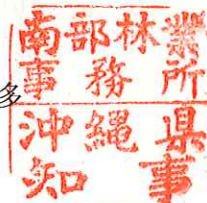 南部林業
事務所
多
沖縄県
知事